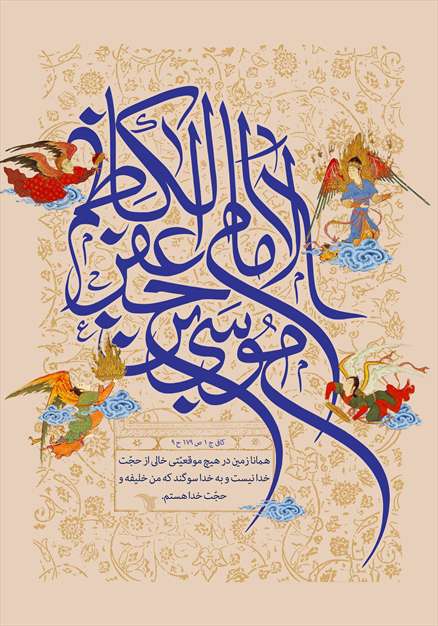 الامام الکاظم
موسی بن جعفر
کافی ج ۱ ص ۱۷۹ ح ۹
همانا زمین در هیچ موقعیّتی خالی از حجّت
خدا نیست و به خدا سوگند که من خلیفه و
حجّت خدا هستم.